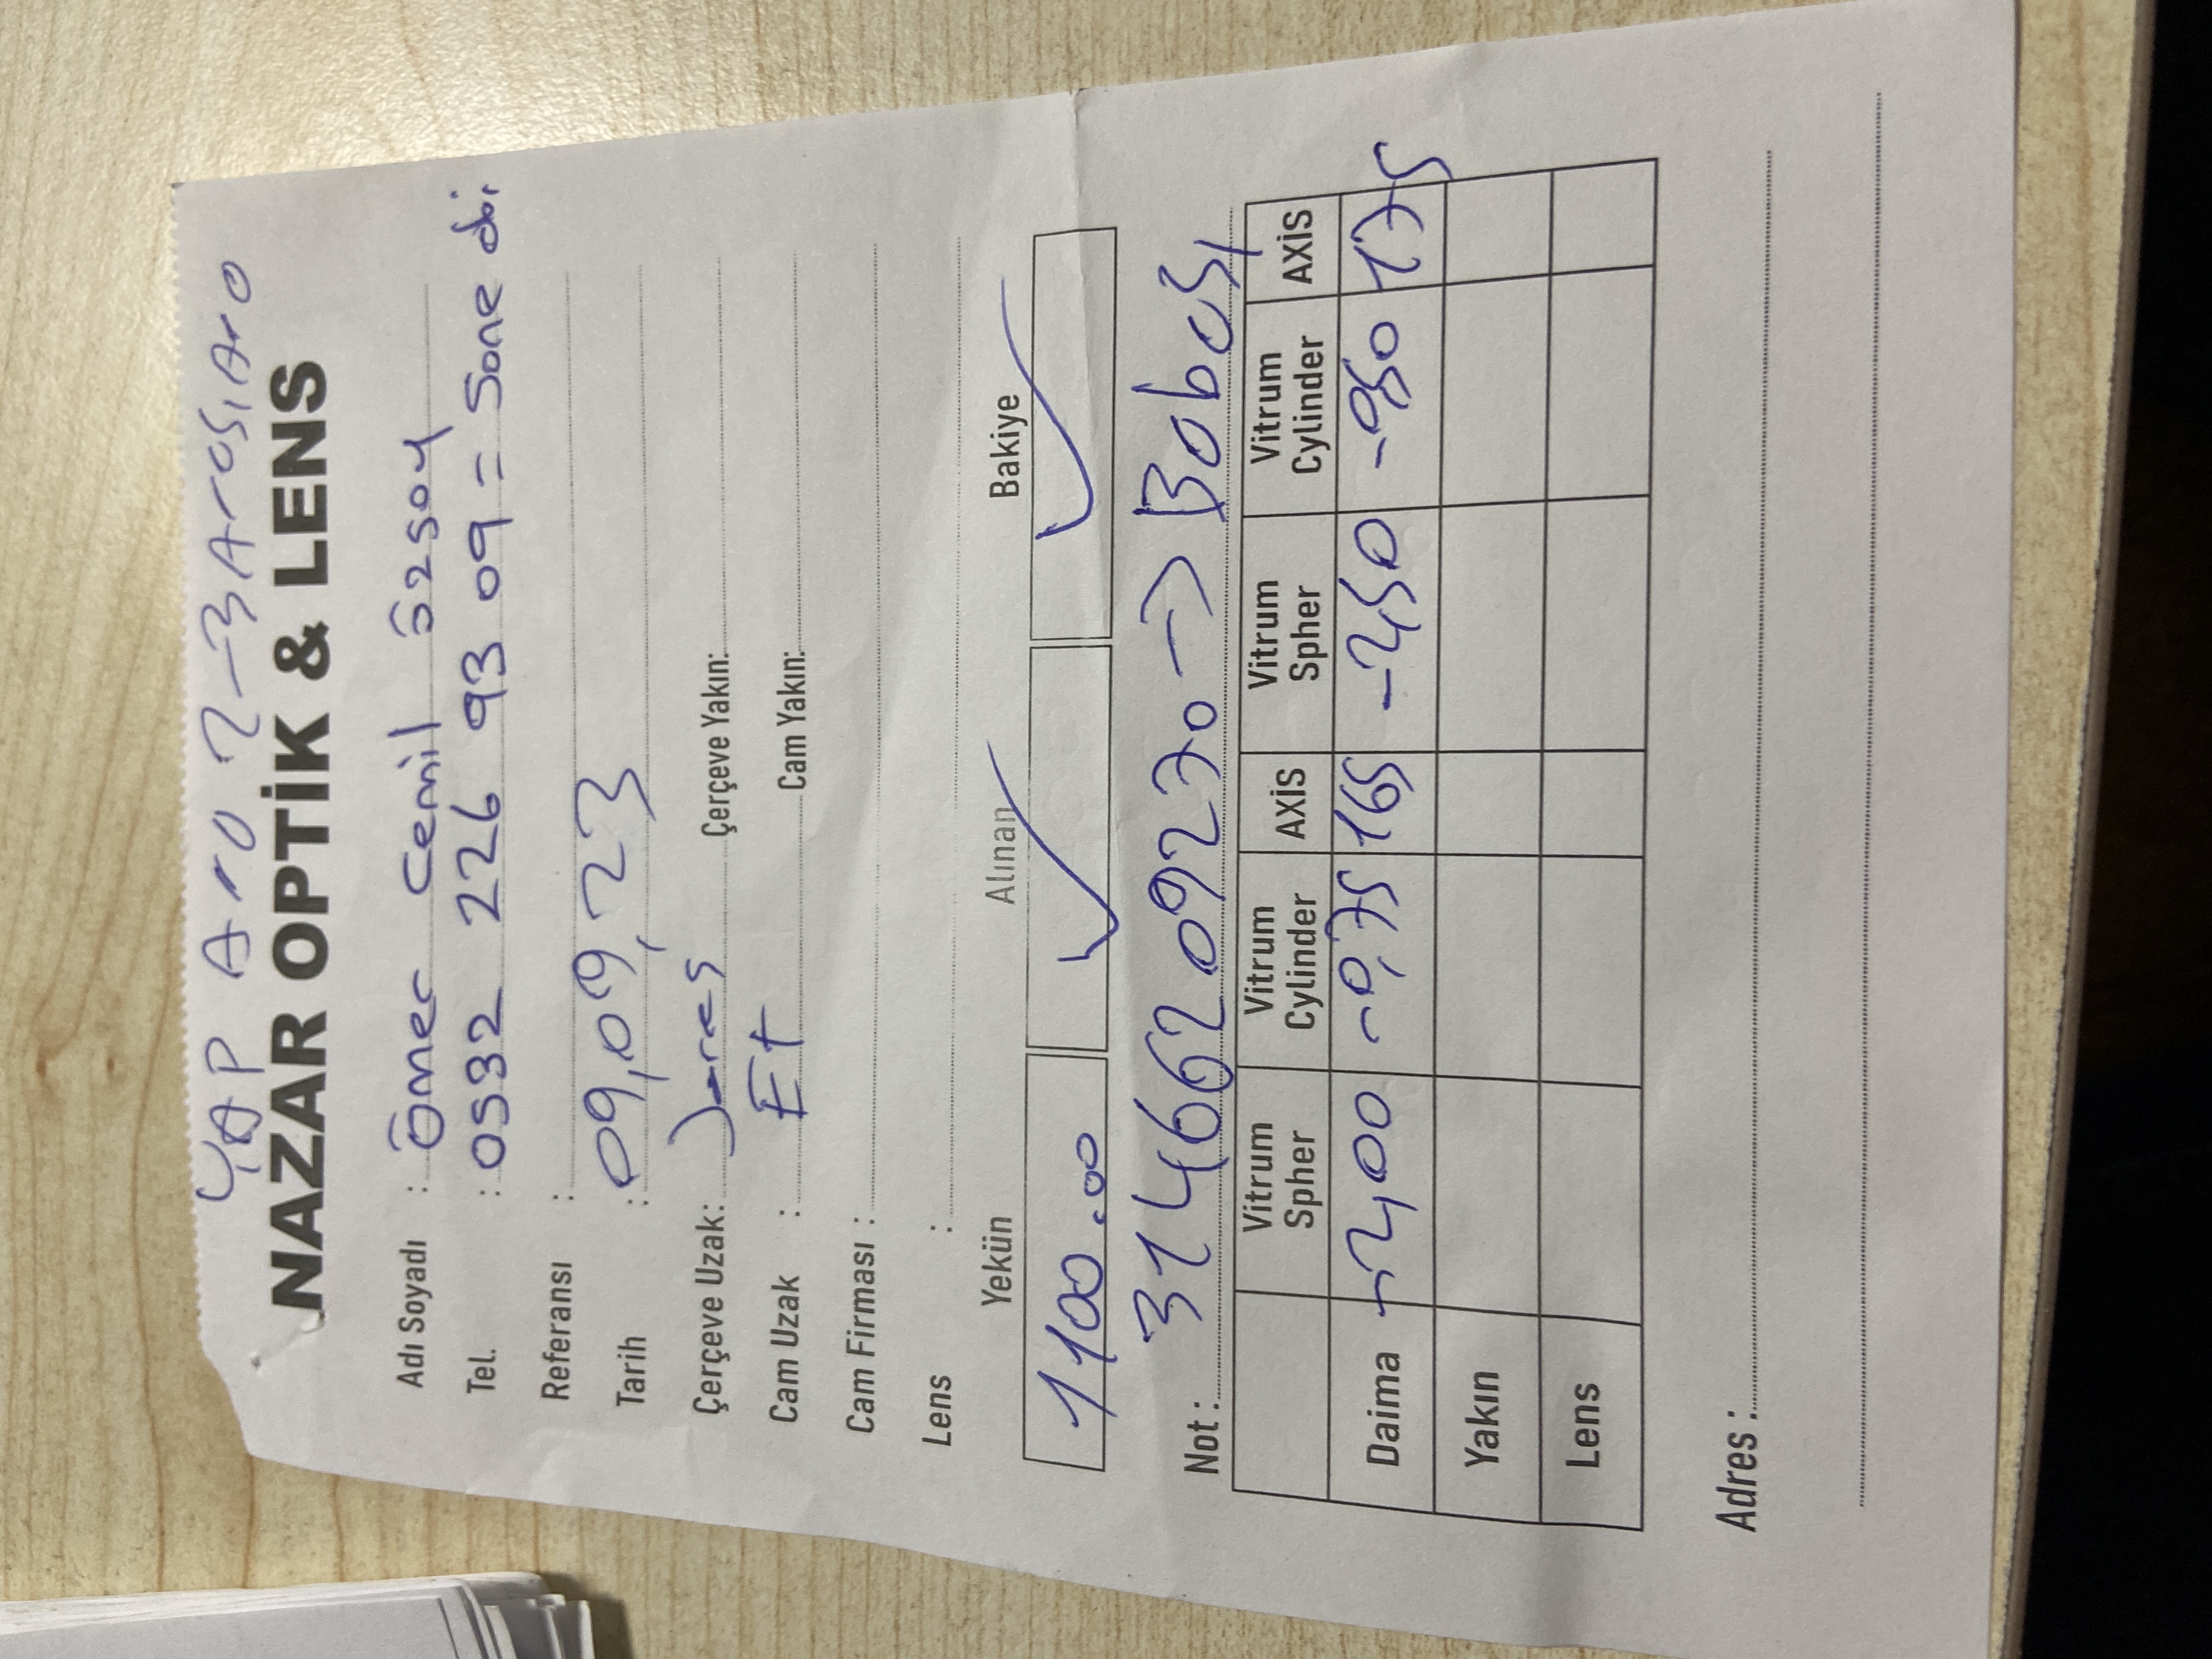 YAP Ara 2-3 Arası Ara
NAZAR OPTİK & LENS
Adı Soyadı : Ömer Cemil Özsoy
Tel. : 0532 226 93 09 =
Referansı :
Tarih : 09,09,23
Çerçeve Uzak: Çerçeve Yakın:
Cam Uzak : Cam Yakın:
Cam Firması :
Lens :
Yekün Alınan Bakiye
1100.00 ✓ ✓
Not : 31466209270 → Babası
Vitrum Spher Vitrum Cylinder AXİS Vitrum Spher Vitrum Cylinder AXİS
Daima -2,00 -0,75 165 -2,50 -0,50 175
Yakın
Lens
Adres :